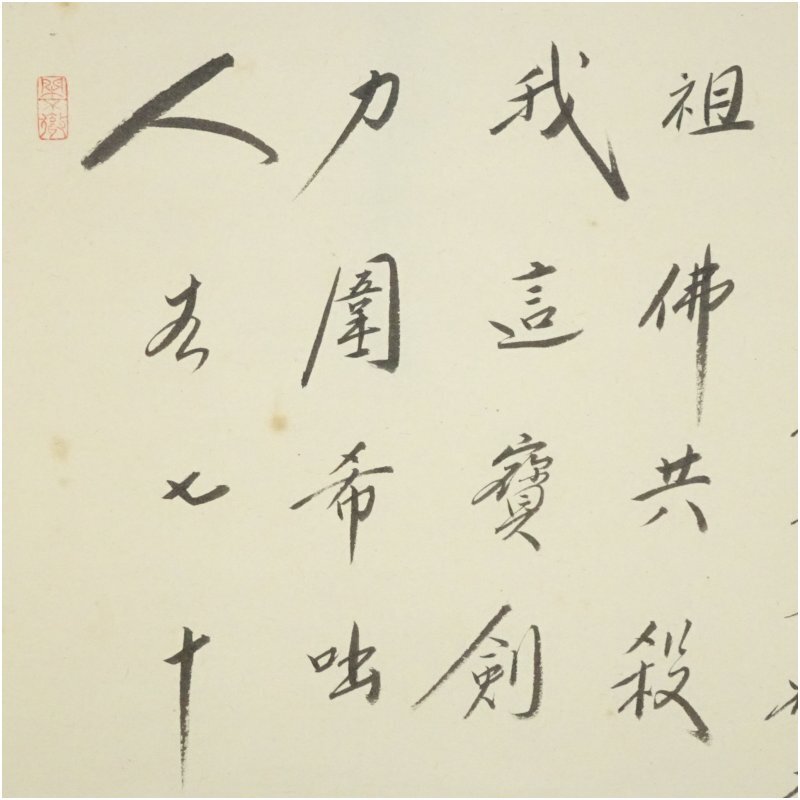 人生七十
力圍希咄
我這寶剣
祖佛共殺